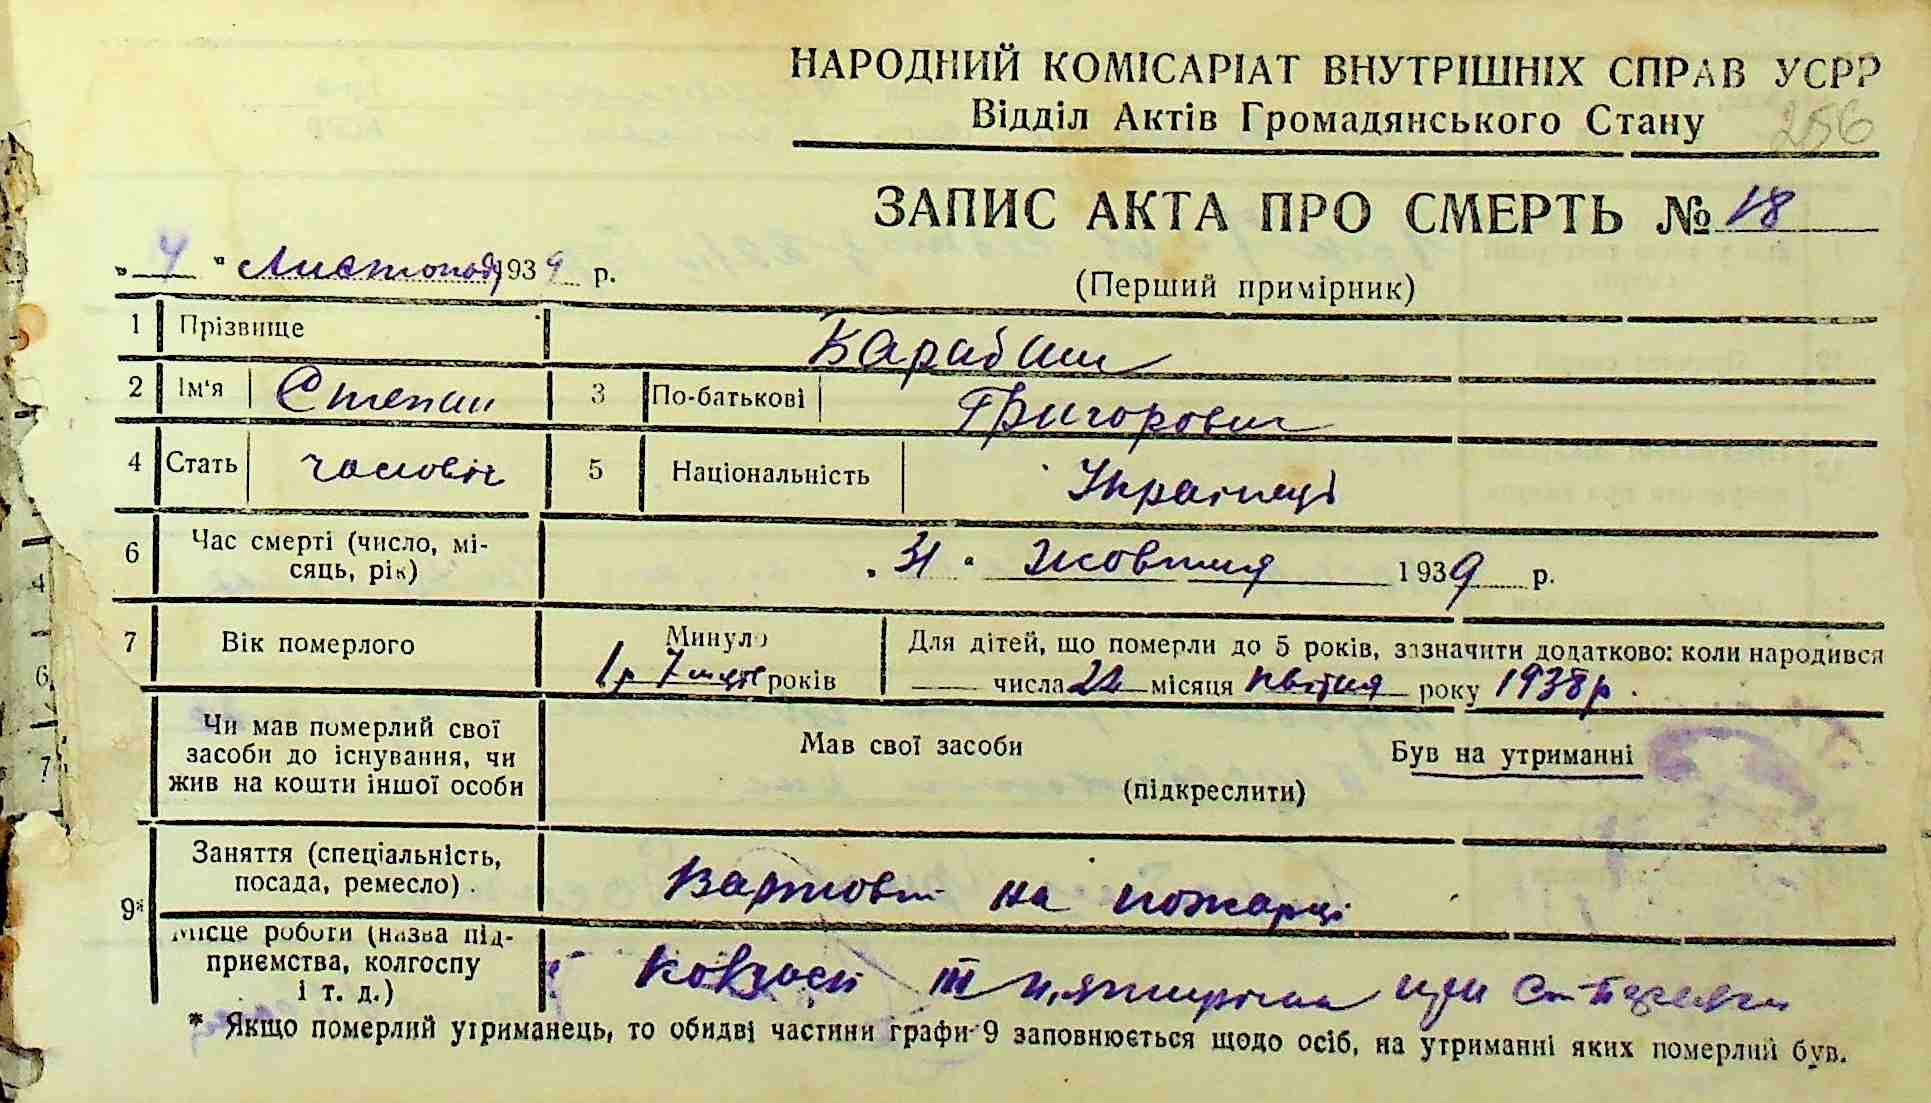 НАРОДНИЙ КОМІСАРІАТ ВНУТРІШНІХ СПРАВ УСРР
Відділ Актів Громадянського Стану
256
ЗАПИС АКТА ПРО СМЕРТЬ № 18
„ 4 “ Листопаду 1939 р.
(Перший примірник)
1 Прізвище Карабаш
2 Ім'я Степан 3 По-батькові Григорович
4 Стать чоловік 5 Національність Українець
6 Час смерті (число, мі-
сяць, рік) „ 31 “ Жовтня 1939 р.
7 Вік померлого Минуло 1 р 7 міс років Для дітей, що померли до 5 років, зазначити додатково: коли народився
числа 22 місяця квітня року 1938 р.
Чи мав померлий свої
засоби до існування, чи
жив на кошти іншої особи
Мав свої засоби Був на утриманні
(підкреслити)
9* Заняття (спеціальність,
посада, ремесло) Вартовий на пожарці
Місце роботи (назва під-
приємства, колгоспу
і т. д.) Колгосп ІІІ п'ятирічки
* Якщо померлий утриманець, то обидві частини графи 9 заповнюється щодо осіб, на утриманні яких померлий був.
4
6
7